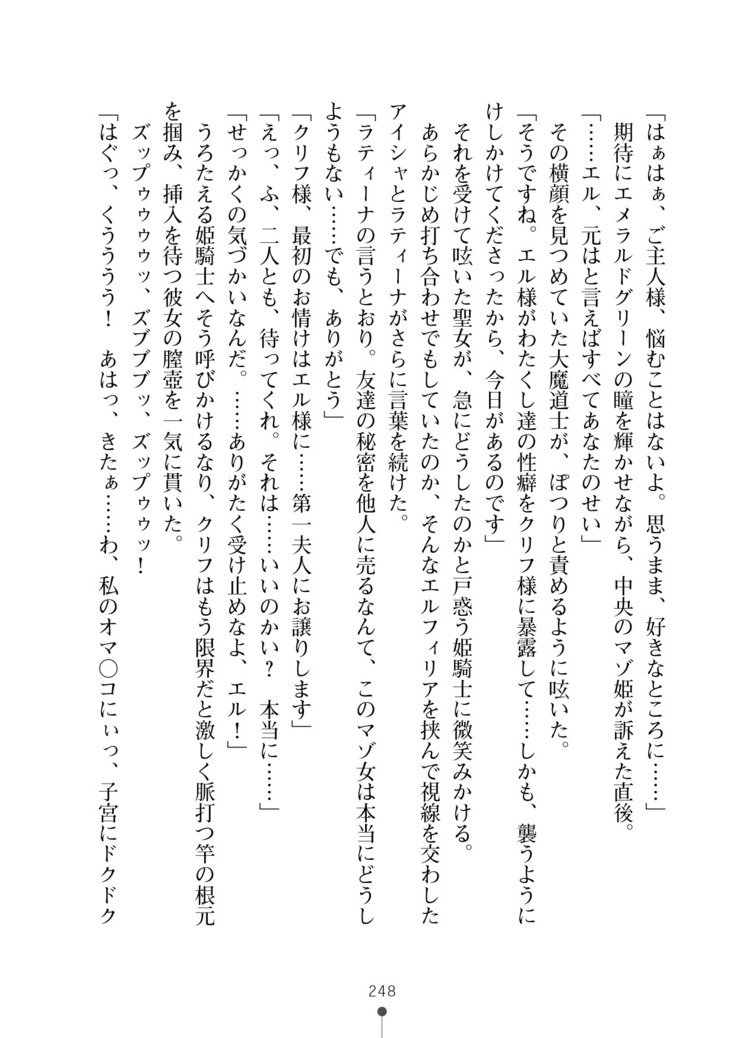 「はぁはぁ、ご主人様、悩むことはないよ。思うまま、好きなところに……」
期待にエメラルドグリーンの瞳を輝かせながら、中央のマゾ姫が訴えた直後。
「……エル、元はと言えばすべてあなたのせい」
その横顔を見つめていた大魔道士が、ぽつりと責めるように呟いた。
「そうですね。エル様がわたくし達の性癖をクリフ様に暴露して……しかも、襲うように
けしかけてくださったから、今日があるのです」
それを受けて呟いた聖女が、急にどうしたのかと戸惑う姫騎士に微笑みかける。
あらかじめ打ち合わせでもしていたのか、そんなエルフィリアを挟んで視線を交わした
アイシャとラティーナがさらに言葉を続けた。
「ラティーナの言うとおり。友達の秘密を他人に売るなんて、このマゾ女は本当にどうし
ようもない……でも、ありがとう」
「クリフ様、最初のお情けはエル様に……第一夫人にお譲りします」
「えっ、ふ、二人とも、待ってくれ。それは……いいのかい？　本当に……」
「せっかくの気づかいなんだ。……ありがたく受け止めなよ、エル！」
うろたえる姫騎士へそう呼びかけるなり、クリフはもう限界だと激しく脈打つ竿の根元
を掴み、挿入を待つ彼女の膣壺を一気に貫いた。
ズップゥゥゥゥッ、ズブブブッ、ズップゥゥッ！
「はぐっ、くうううう！　あはっ、きたぁ……わ、私のオマ〇コにぃっ、子宮にドクドク
248